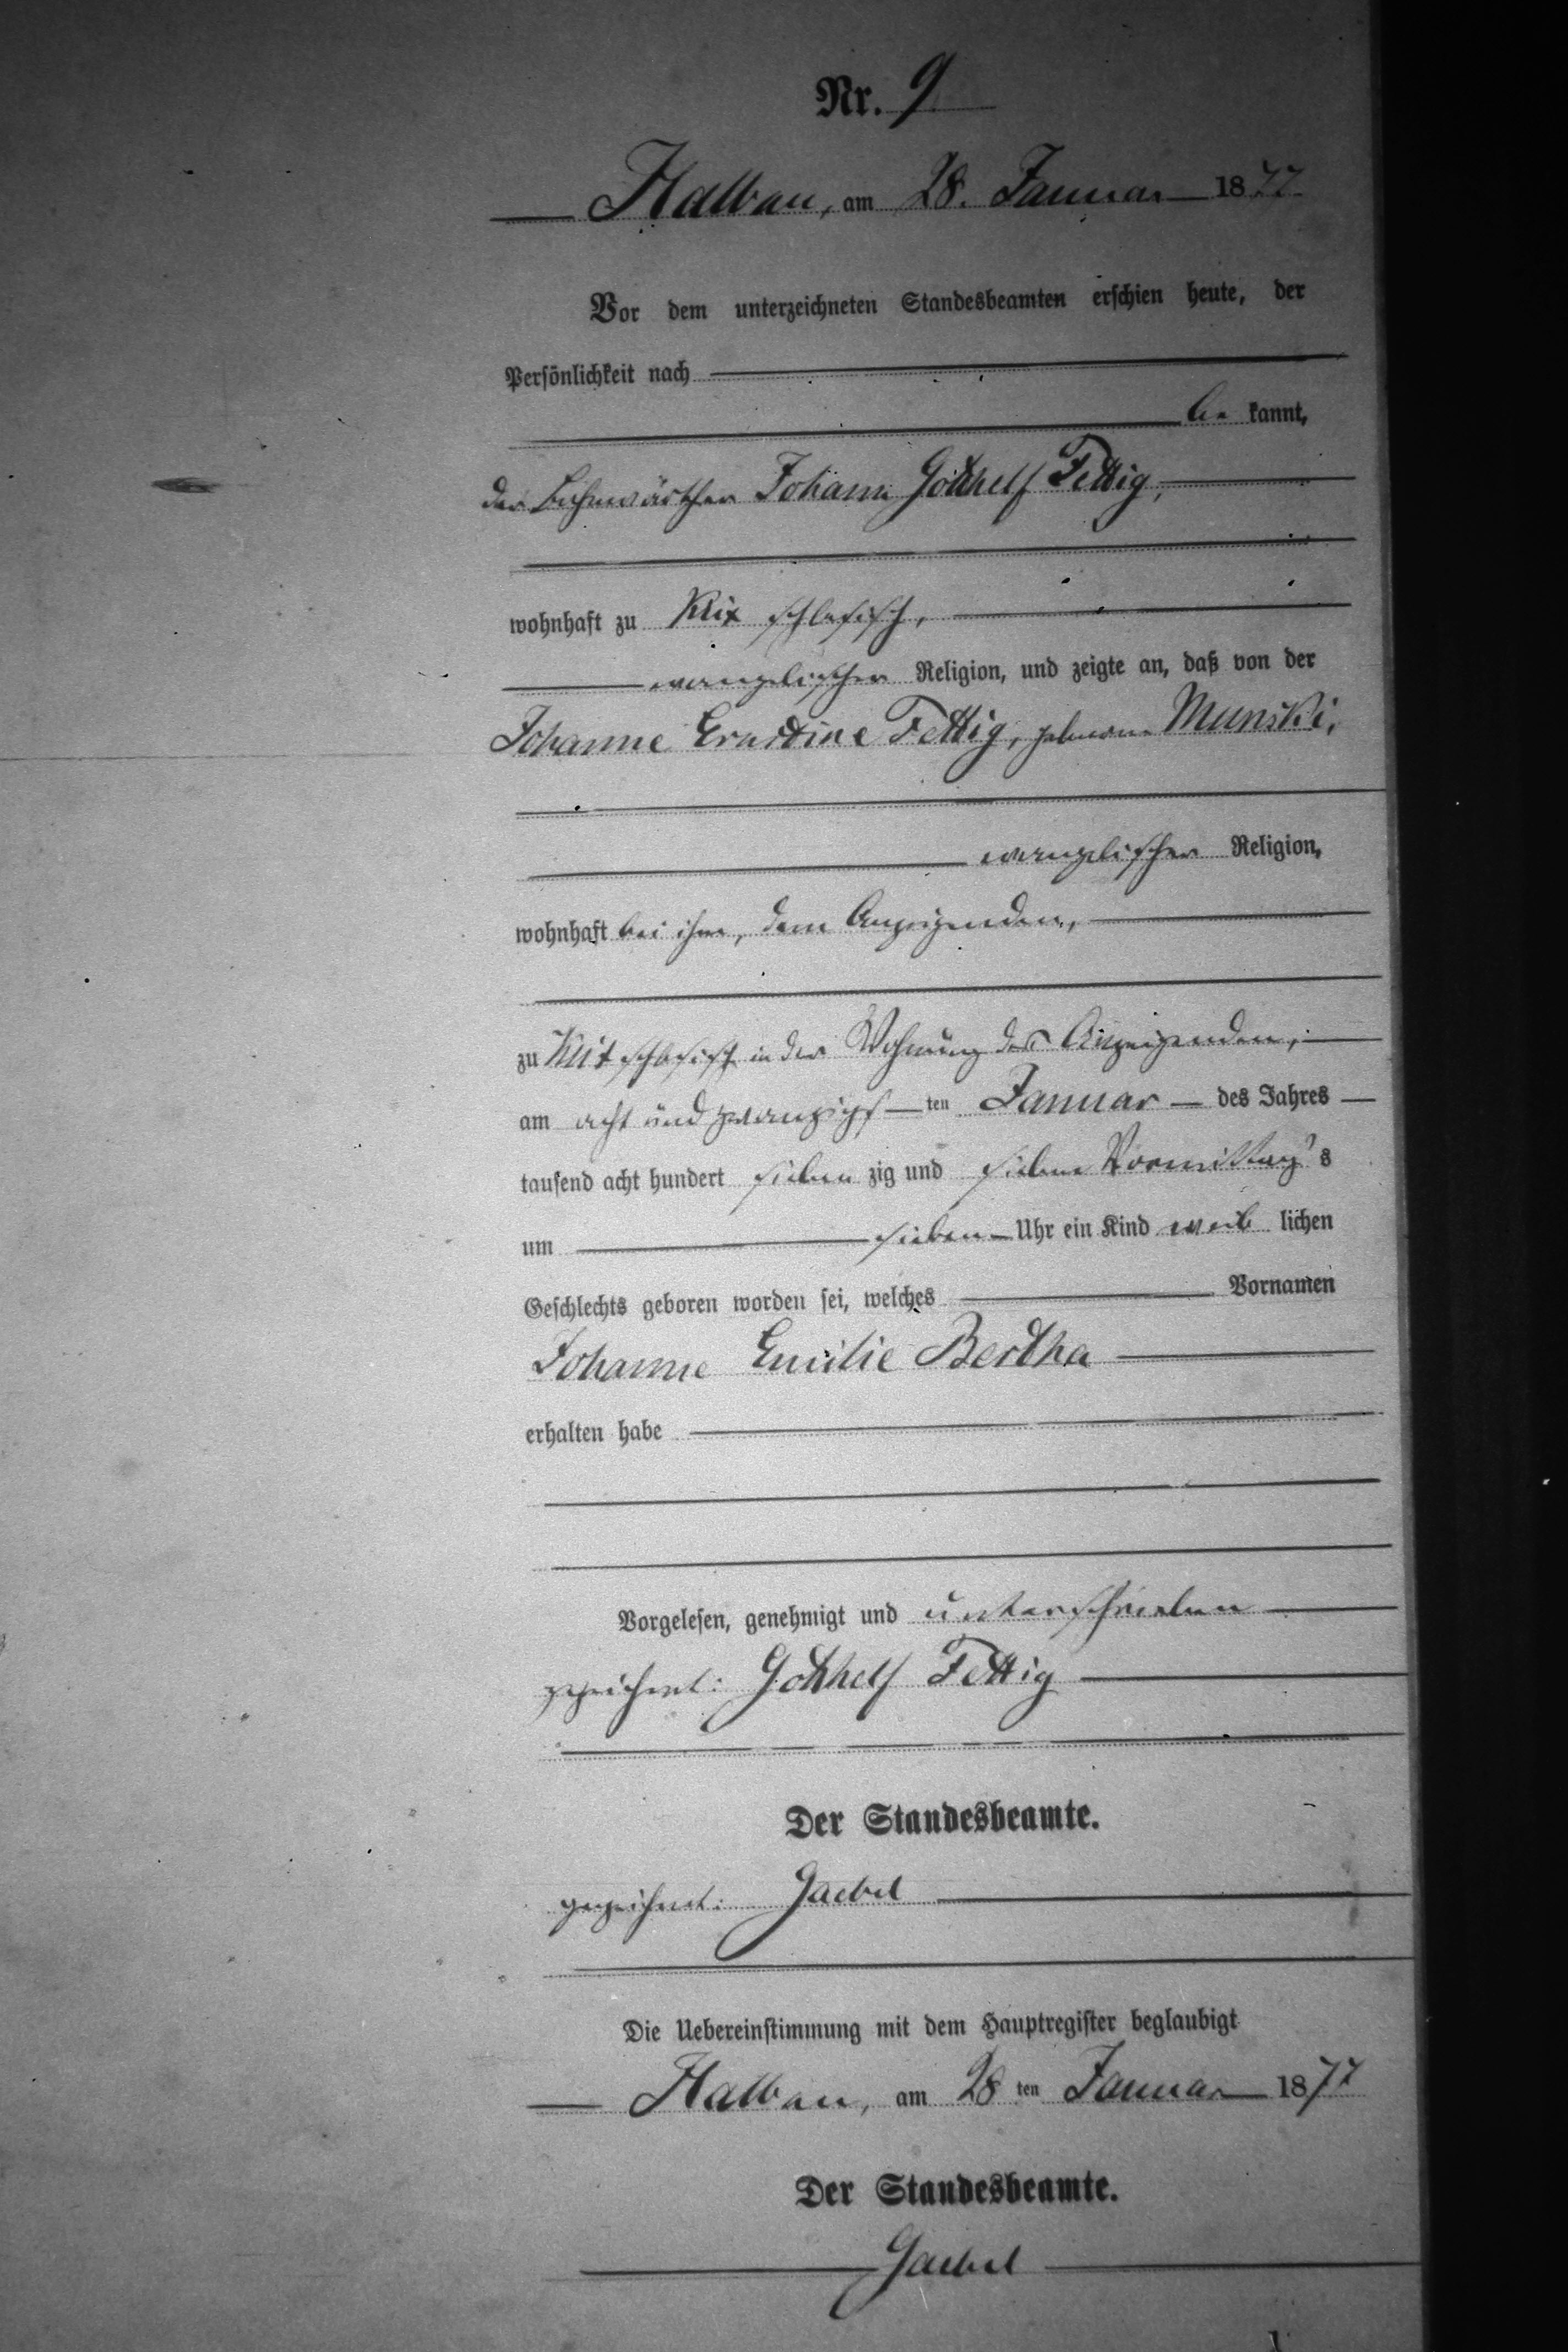 Nr. 9
Halbau, am 28. Januar 1877
Vor dem unterzeichneten Standesbeamten erschien heute, der
Persönlichkeit nach
be kannt,
der Bahnwärther Johann Gotthelf Fettig,
wohnhaft zu Klix schlesisch,
evangelischer Religion, und zeigte an, daß von der
Johanne Ernstine Fettig, geborne Munski,
evangelischer Religion,
wohnhaft bei ihm, dem Anzeigenden,
zu Klix schlesisch in der Wohnung des Anzeigenden,
am acht und zwanzigs ten Januar des Jahres
tausend acht hundert sieben zig und sieben Vormittag's
um sieben Uhr ein Kind weib lichen
Geschlechts geboren worden sei, welches Vornamen
Johanne Emilie Bertha
erhalten habe
Vorgelesen, genehmigt und unterschrieben
gezeichnet: Gotthelf Fettig
Der Standesbeamte.
gezeichnet: Gaebel
Die Uebereinstimmung mit dem Hauptregister beglaubigt
Halbau, am 28 ten Januar 1877
Der Standesbeamte.
Gaebel